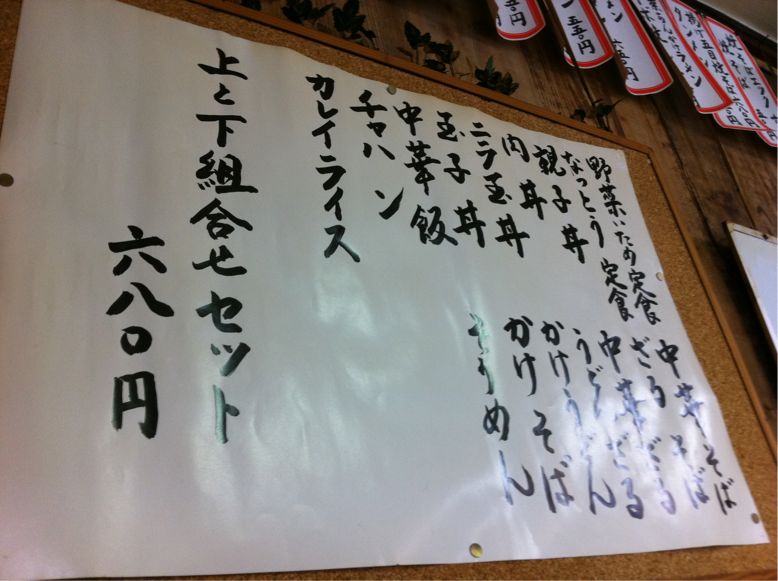 野菜いため定食
なっとう定食
親子丼
肉丼
ニラ玉丼
玉子丼
中華飯
チャハン
カレイライス
中華そば
ざるそば
中華ざる
うどん
かけうどん
かけそば
そうめん
上と下組合せセット
六八〇円
五五〇円